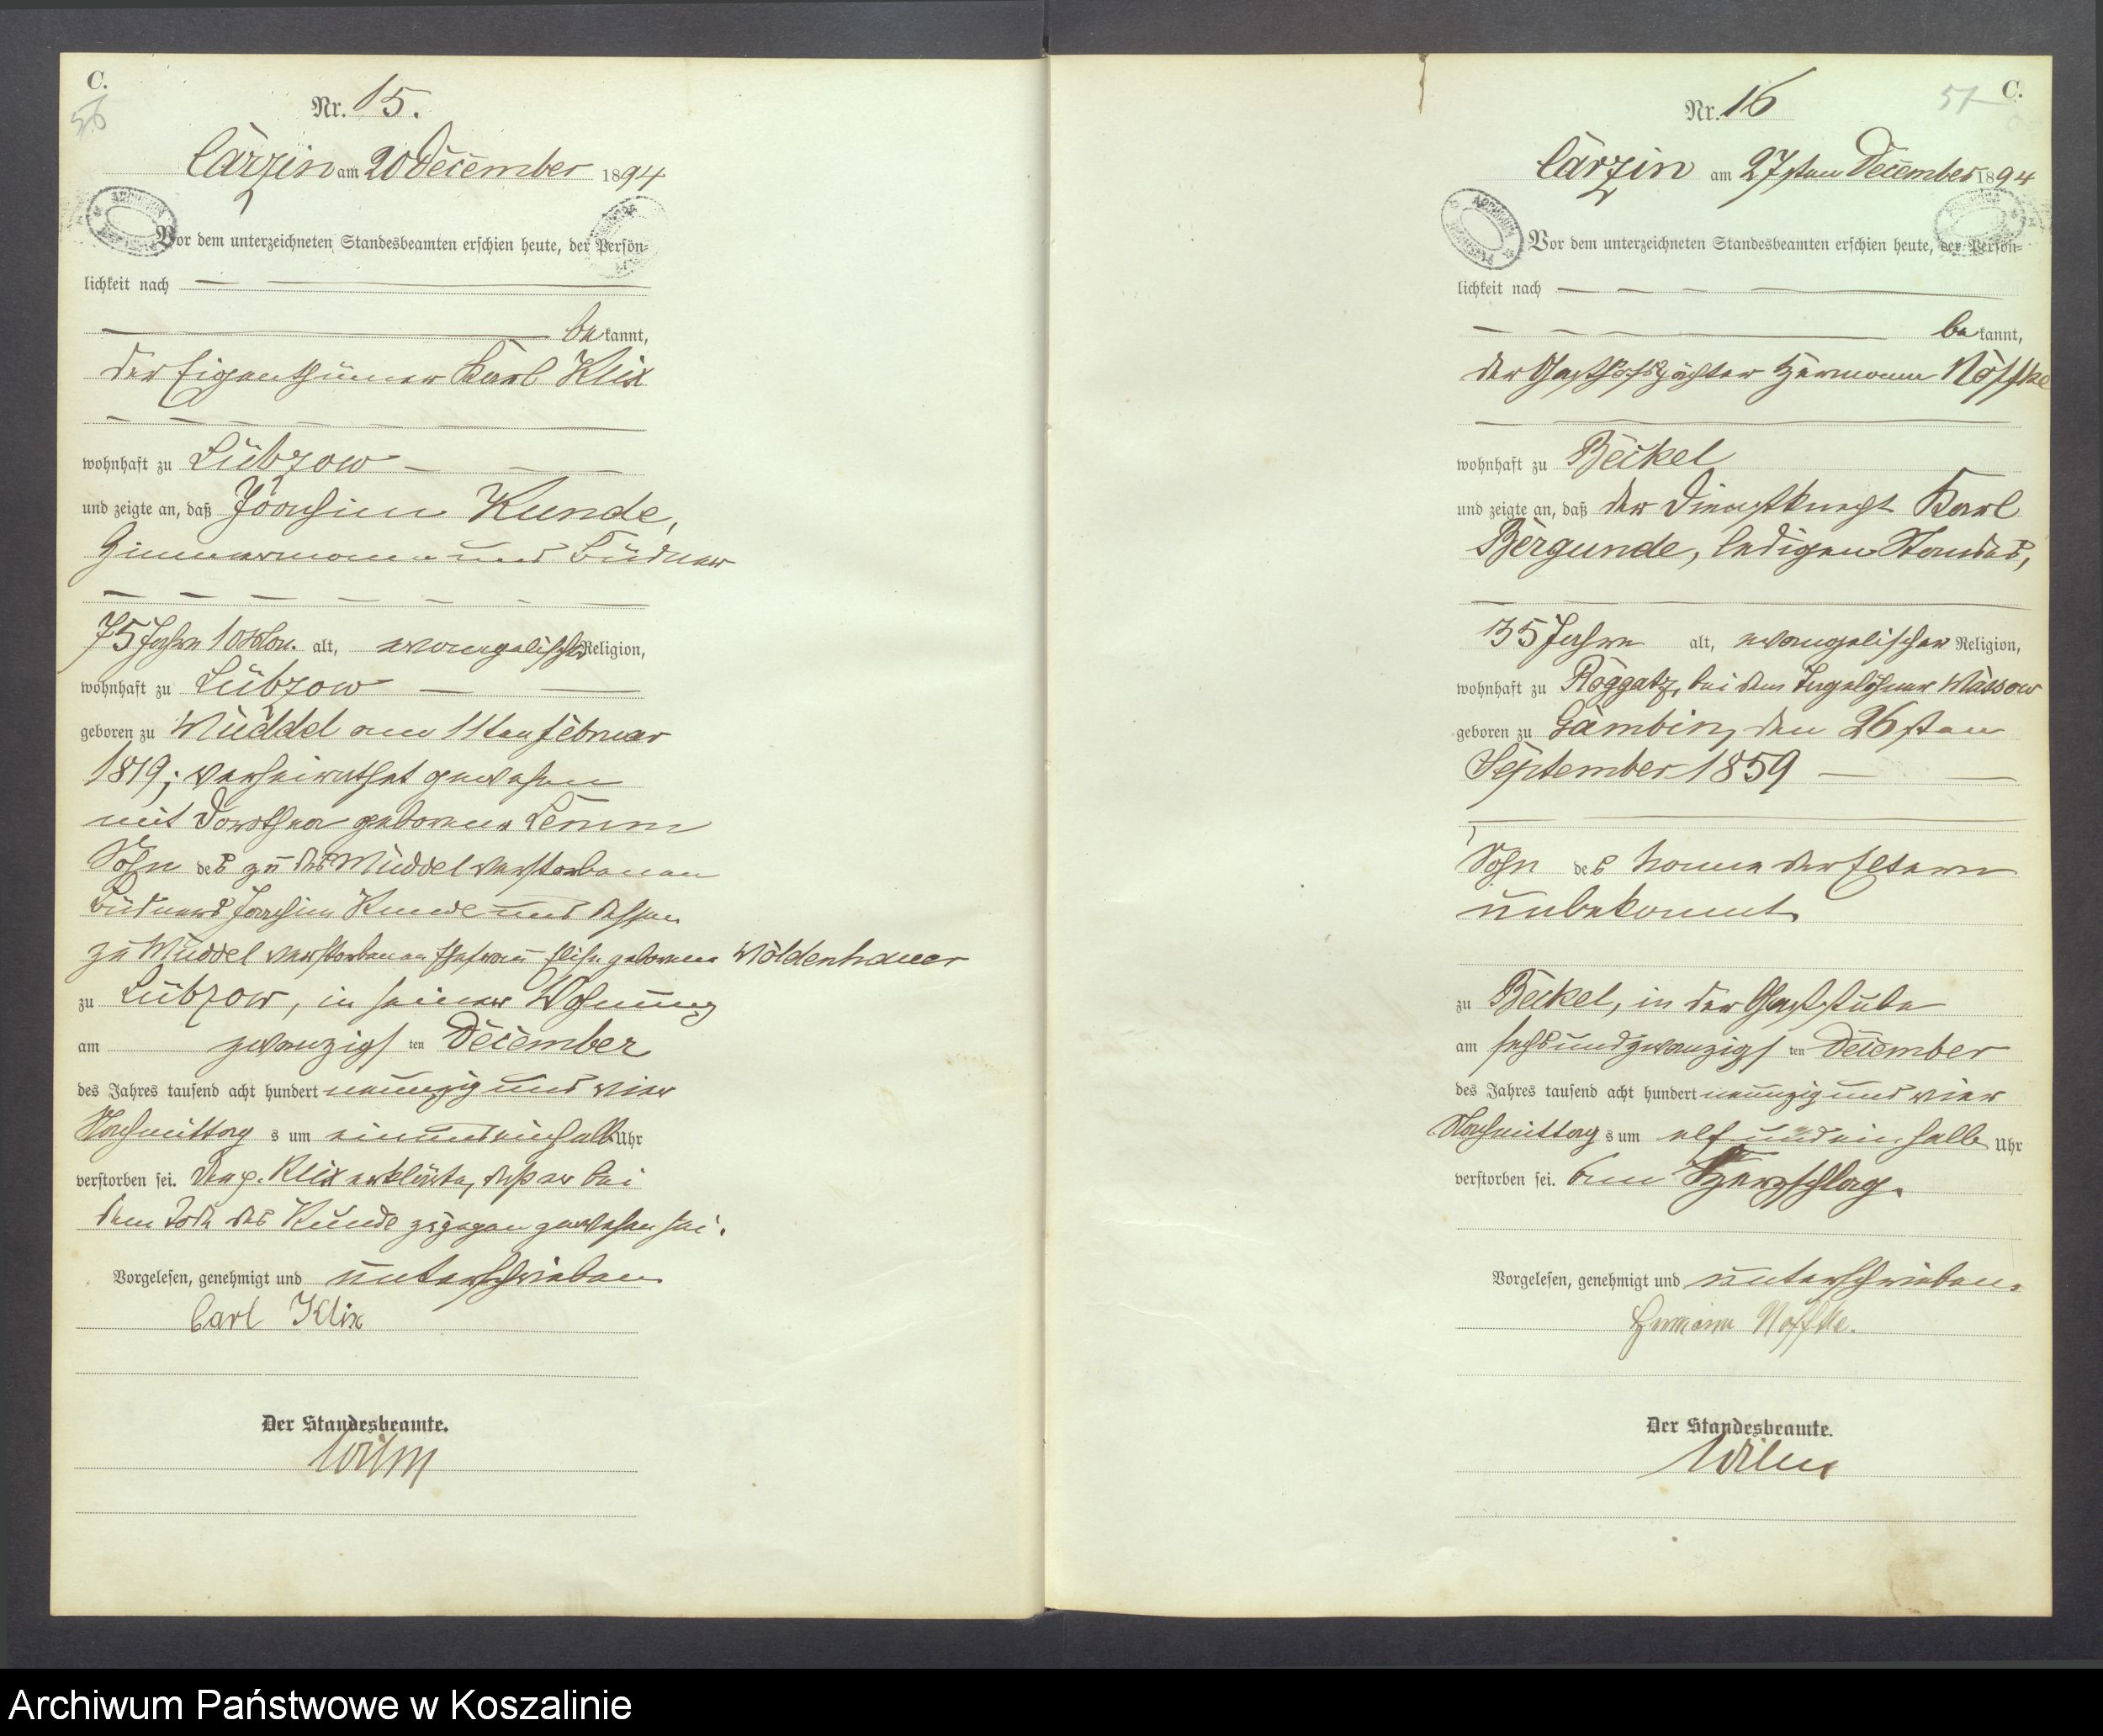 C.
56
Nr. 15.
Carzin am 20 December 1894
Vor dem unterzeichneten Standesbeamten erschien heute, der Persön-
lichkeit nach
be kannt,
der Eigenthümer Karl Klix
wohnhaft zu Lübzow
und zeigte an, daß Joachim Kunde,
Zimmermann und Büdner
75 Jahre 10 Mon. alt, evangelischer Religion,
wohnhaft zu Lübzow
geboren zu Müddel am 11ten Februar
1819; verheirathet gewesen
mit Dorothea geborene Lemm
Sohn des zu Müddel verstorbenen
Büdners Joachim Kunde und dessen
zu Müddel verstorbenen Ehefrau geborene Woldenhauer
zu Lübzow, in seiner Wohnung
am zwanzigs ten December
des Jahres tausend acht hundert neunzig und vier
Nachmittag s um ein und ein halb Uhr
verstorben sei. Der p. Klix erklärte, daß er bei
dem Tode des Kunde zugegen gewesen sei.
Vorgelesen, genehmigt und unterschrieben
Carl Klix
Der Standesbeamte.
Wilm
C.
57
Nr. 16
Carzin am 27sten December 1894
Vor dem unterzeichneten Standesbeamten erschien heute, der Persön-
lichkeit nach
be kannt,
der Gasthofspächter Hermann Noffke
wohnhaft zu Beckel
und zeigte an, daß der Dienstknecht Karl
Bergunde, ledigen Standes,
35 Jahre alt, evangelischer Religion,
wohnhaft zu Roggatz, bei dem Tagelöhner Wassow
geboren zu Gambin, den 26sten
September 1859
Sohn des Name der Eltern
unbekannt
zu Beckel, in der Gaststube
am sechsundzwanzigs ten December
des Jahres tausend acht hundert neunzig und vier
Nachmittag s um elf und ein halb Uhr
verstorben sei. am Herzschlag.
Vorgelesen, genehmigt und unterschrieben.
Hermann Noffke.
Der Standesbeamte.
Wilm
Archiwum Państwowe w Koszalinie